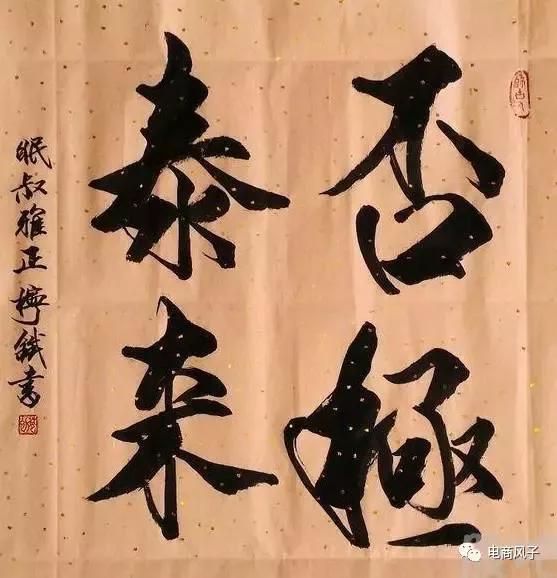 否極
泰来
眠叔雅正擰鐵書
电商风子